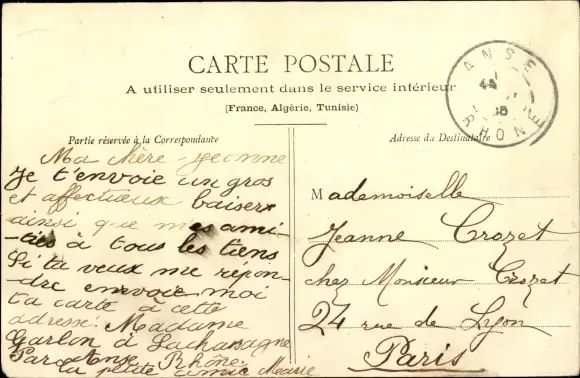 CARTE POSTALE
A utiliser seulement dans le service intérieur
(France, Algérie, Tunisie)
ANSE
RHONE
Partie réservée à la Correspondance
Adresse du Destinataire
Ma chère Jeanne
Je t'envoie un gros
et affectueux baiser
ainsi que mes ami-
-tiés à tous les tiens
Si tu veux me répon-
dre envoie moi
ta carte à cette
adresse: Madame
Garlon à Lachassagne
Par Anse Rhône
ta petite amie Marie
Mademoiselle
Jeanne Crozet
chez Monsieur Crozet
24 rue de Lyon
Paris